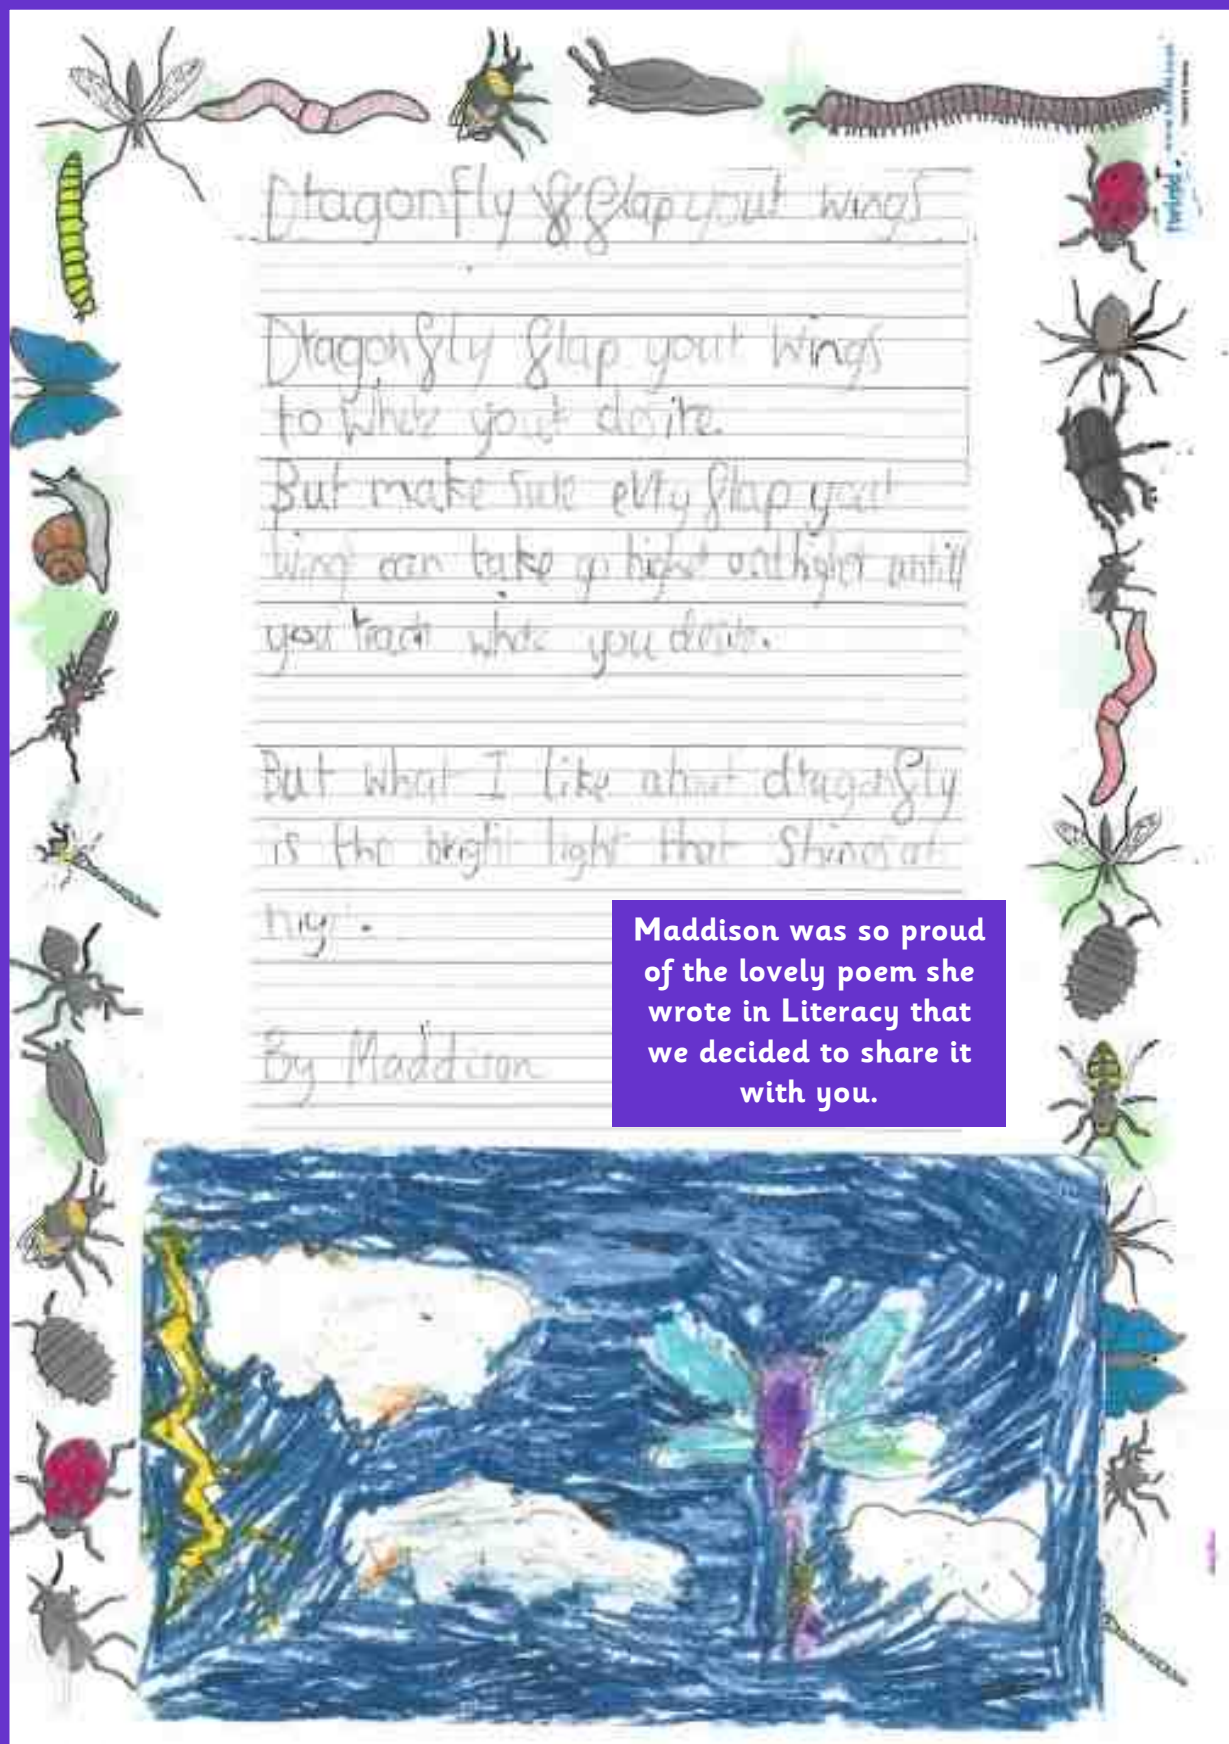 Dragonfly flap your wings
Dragonfly flap your wings
to whate your desire.
But make sure evry flap your
wings can take go higher and higher untill
you reach whate you desire.
But what I like about dragonfly
is the bright light that Shines at
night.
By Maddison
Maddison was so proud
of the lovely poem she
wrote in Literacy that
we decided to share it
with you.
twinkl